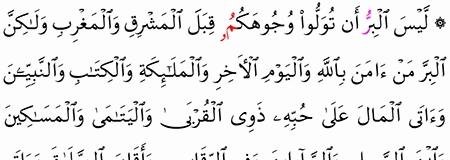 ۞ لَّيْسَ ٱلْبِرُّ أَن تُوَلُّوا۟ وُجُوهَكُمُۥ قِبَلَ ٱلْمَشْرِقِ وَٱلْمَغْرِبِ وَلَٰكِنَّ
ٱلْبِرَّ مَنْ ءَامَنَ بِٱللَّهِ وَٱلْيَوْمِ ٱلْأَخِرِ وَٱلْمَلَٰٓئِكَةِ وَٱلْكِتَٰبِ وَٱلنَّبِيِّـۧنَ
وَءَاتَى ٱلْمَالَ عَلَىٰ حُبِّهِۦ ذَوِى ٱلْقُرْبَىٰ وَٱلْيَتَٰمَىٰ وَٱلْمَسَٰكِينَ